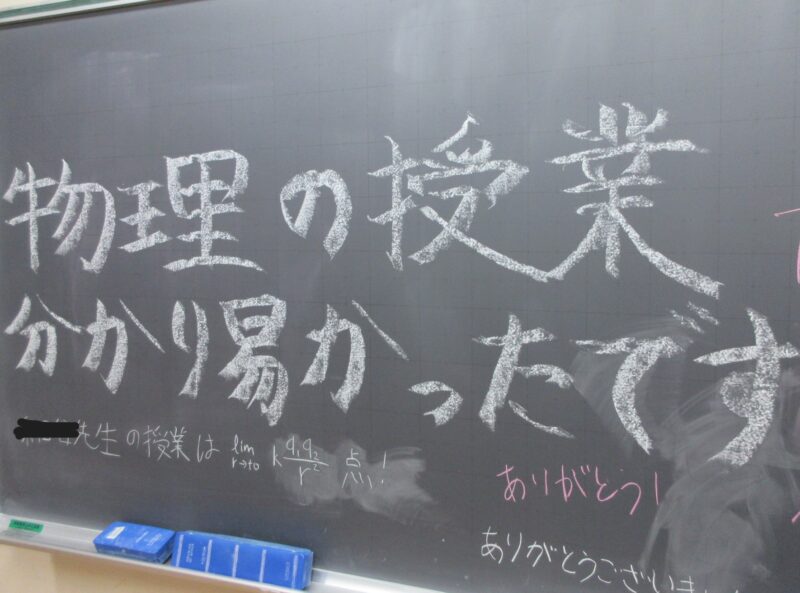 物理の授業
分かり易かったです
先生の授業は lim r→+0 k q₁q₂/r² 点!
ありがとう!
ありがとうございま